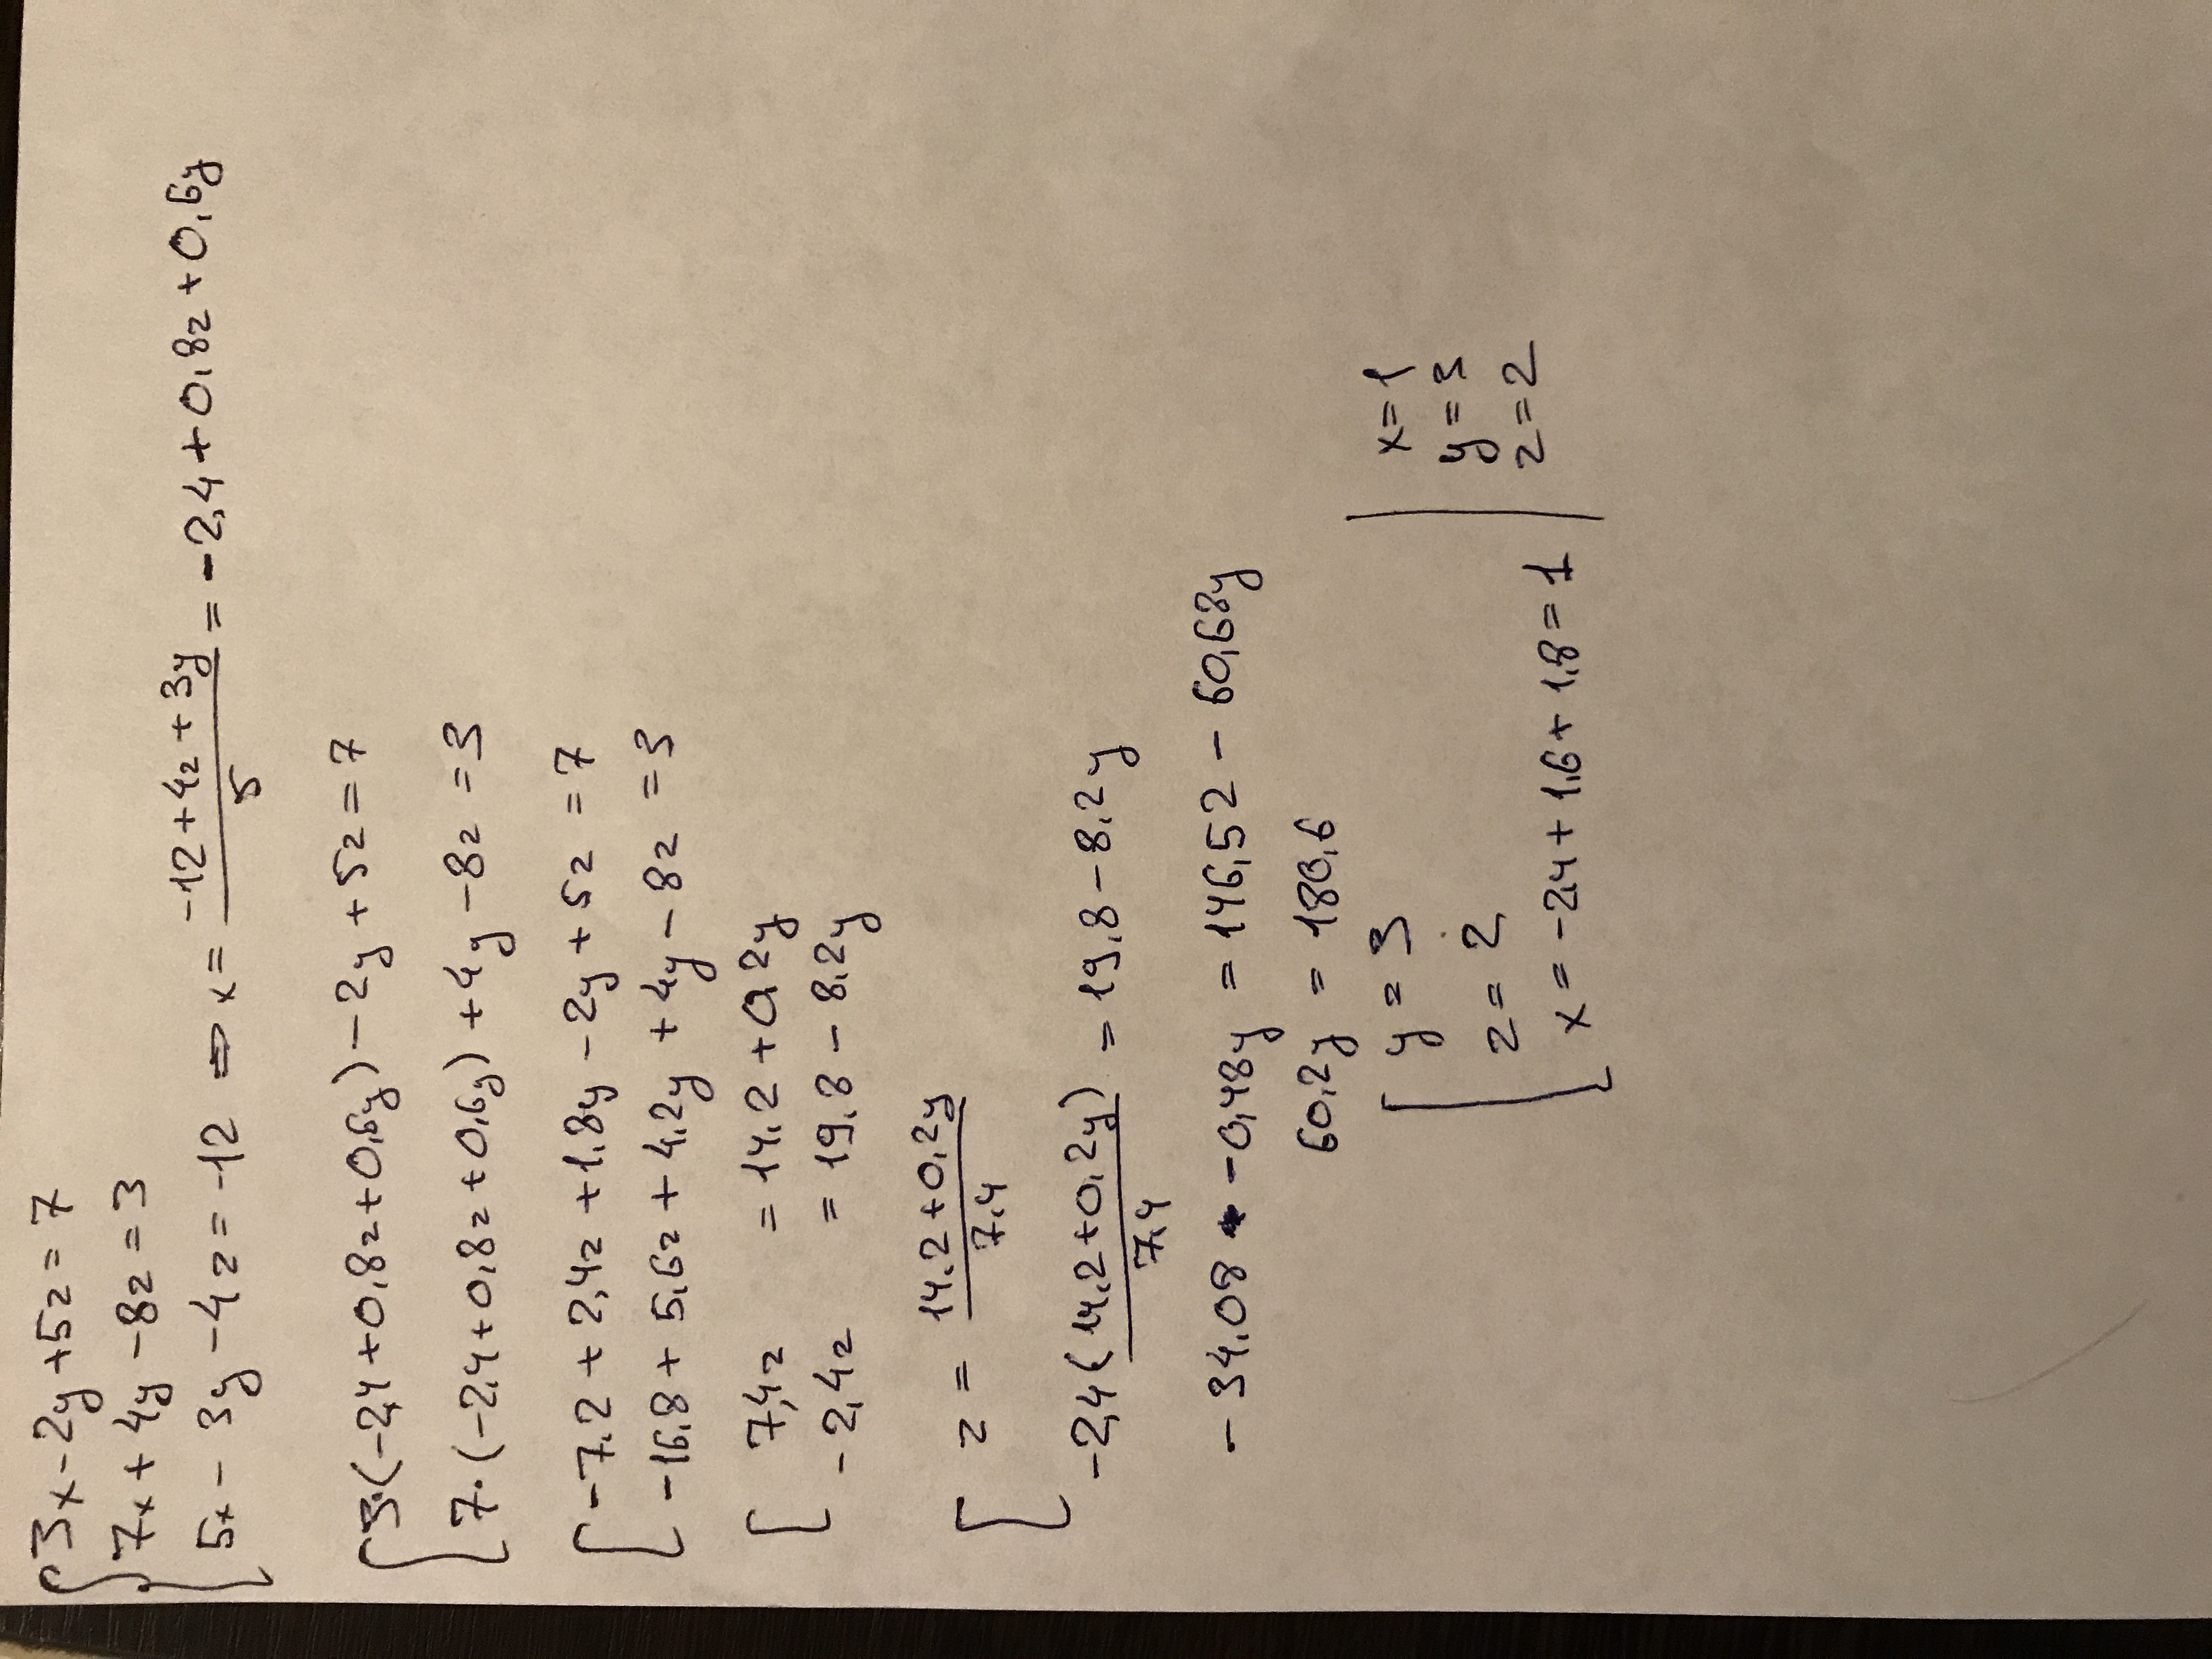 3x - 2y + 5z = 7
7x + 4y - 8z = 3
5x - 3y - 4z = -12 ⇒ x = (-12 + 4z + 3y)/5 = -2,4 + 0,8z + 0,6y
3·(-2,4 + 0,8z + 0,6y) - 2y + 5z = 7
7·(-2,4 + 0,8z + 0,6y) + 4y - 8z = 3
-7,2 + 2,4z + 1,8y - 2y + 5z = 7
-16,8 + 5,6z + 4,2y + 4y - 8z = 3
7,4z = 14,2 + 0,2y
-2,4z = 19,8 - 8,2y
z = (14,2 + 0,2y)/7,4
-2,4(14,2 + 0,2y)/7,4 = 19,8 - 8,2y
-34,08 - 0,48y = 146,52 - 60,68y
60,2y = 180,6
y = 3
z = 2
x = -2,4 + 1,6 + 1,8 = 1
x = 1
y = 3
z = 2